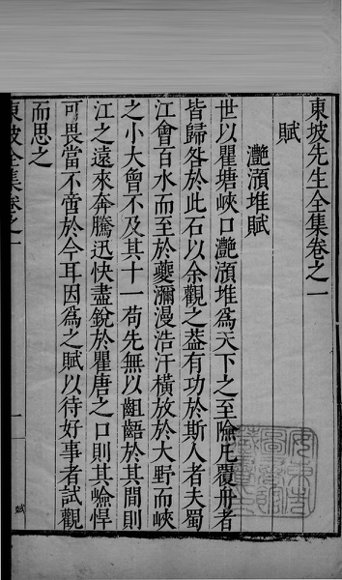 東坡先生全集卷之一
賦
灔澦堆賦
世以瞿塘峽口灔澦堆為天下之至險凡覆舟者
皆歸咎於此石以余觀之葢有功於斯人者夫蜀
江會百水而至於夔瀰漫浩汗橫放於大野而峽
之小大曾不及其十一苟先無以齟齬於其間則
江之遠來奔騰迅快盡銳於瞿唐之口則其嶮悍
可畏當不啻於今耳因為之賦以待好事者試觀
而思之
東坡全集卷之一
一
賦